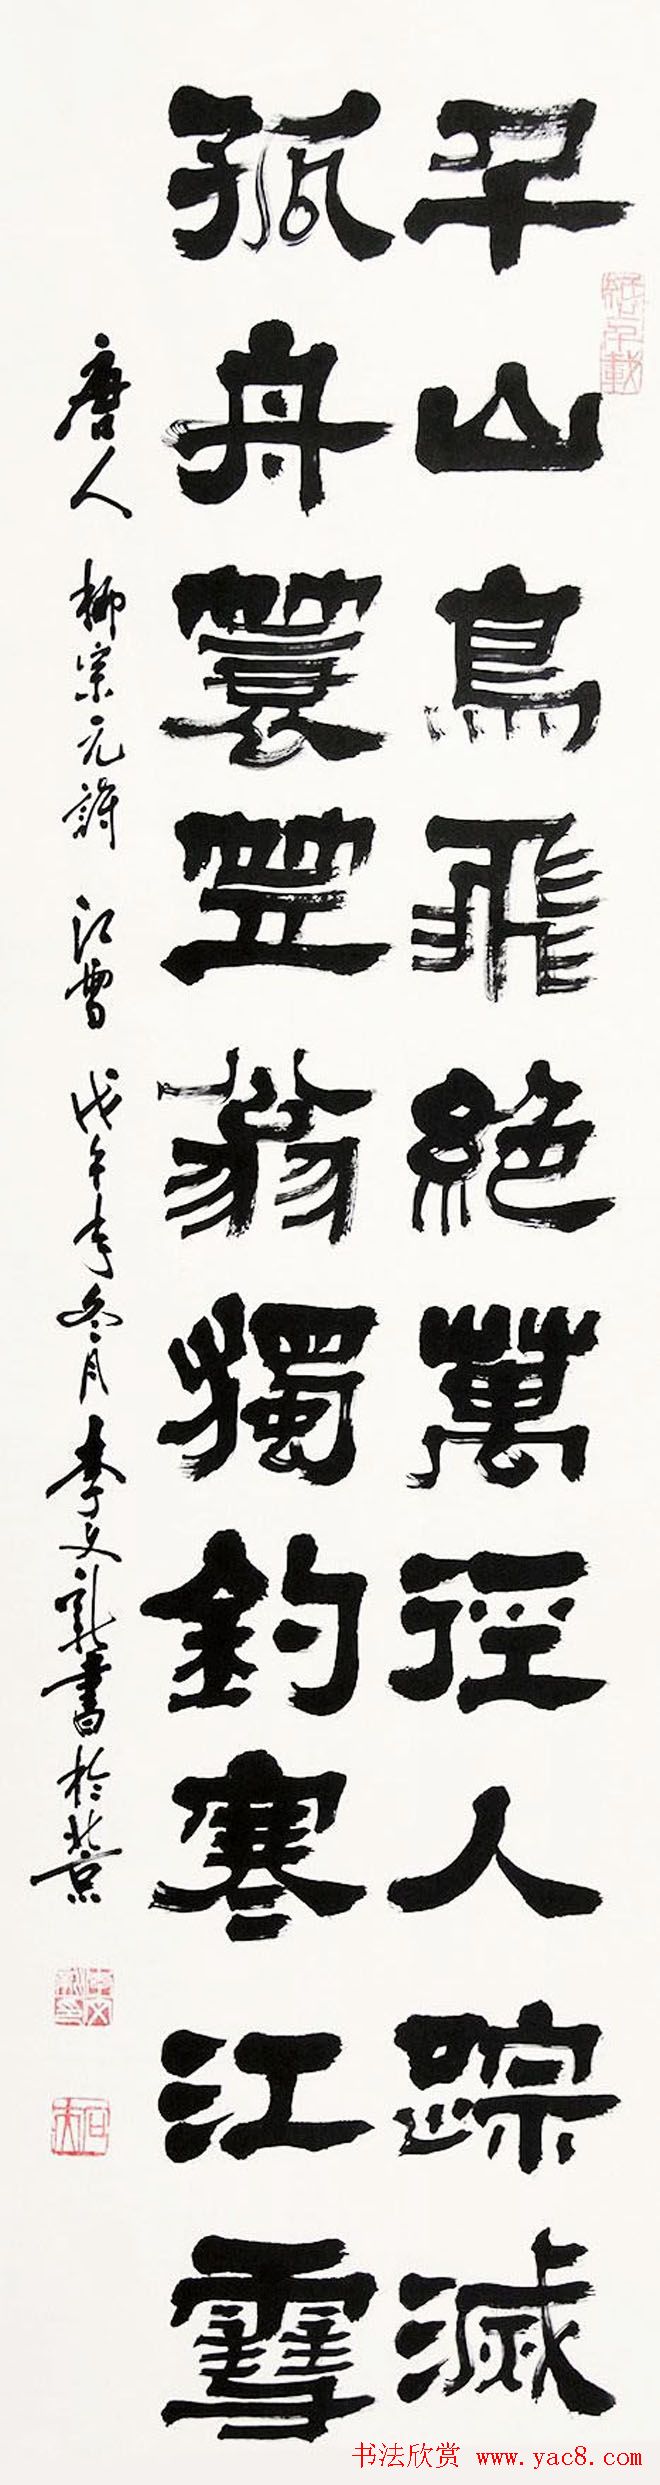 千山鳥飛絕萬徑人踪滅
孤舟蓑笠翁獨釣寒江雪
唐人柳宗元詩江雪戊午年冬月李文新書於北京
书法欣赏 www.yac8.com